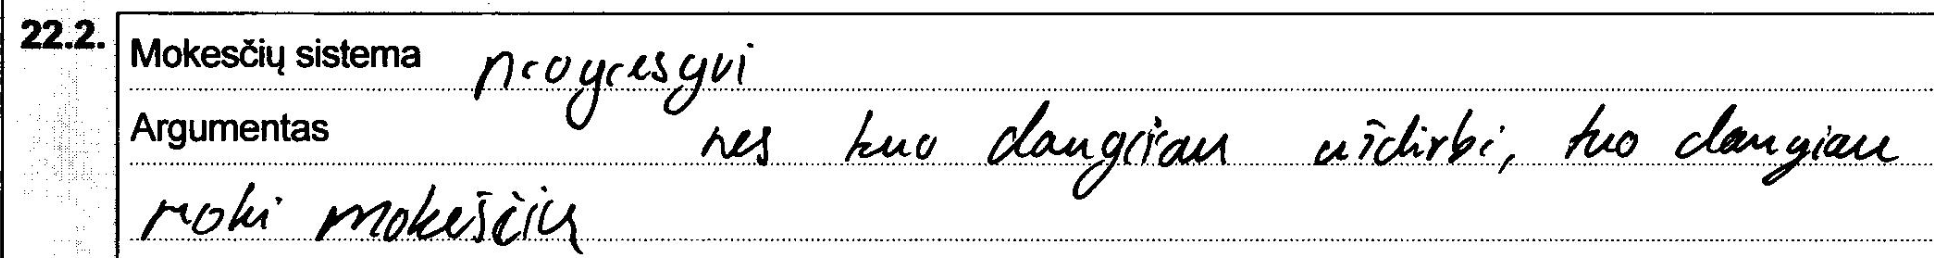 22.2.
Mokesčių sistema progresyvi
Argumentas nes kuo daugiau uždirbi, tuo daugiau
moki mokesčių